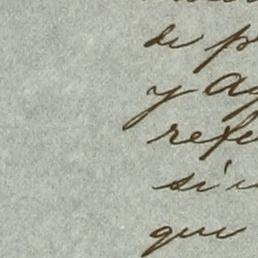 de p
y Ag
refe
si
que